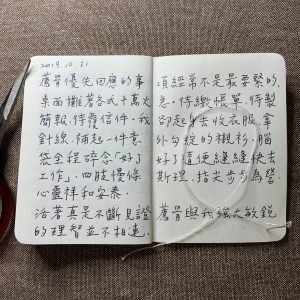 2019.10.31
薦骨優先回應的事項經常不是最要緊的。
桌面攤著各式十萬火急。待繳帳單,待製
簡報,待覆信件。我卻起身去收衣服,拿
針線,補起一件意外勾綻的襯衫。腦
袋全程碎念「好了好了隨便縫縫快去
工作」,四肢慢條斯理,指尖步步為營。
心靈祥和安泰。
活著真是不斷見證薦骨與我強大敏銳
的理智並不相連。